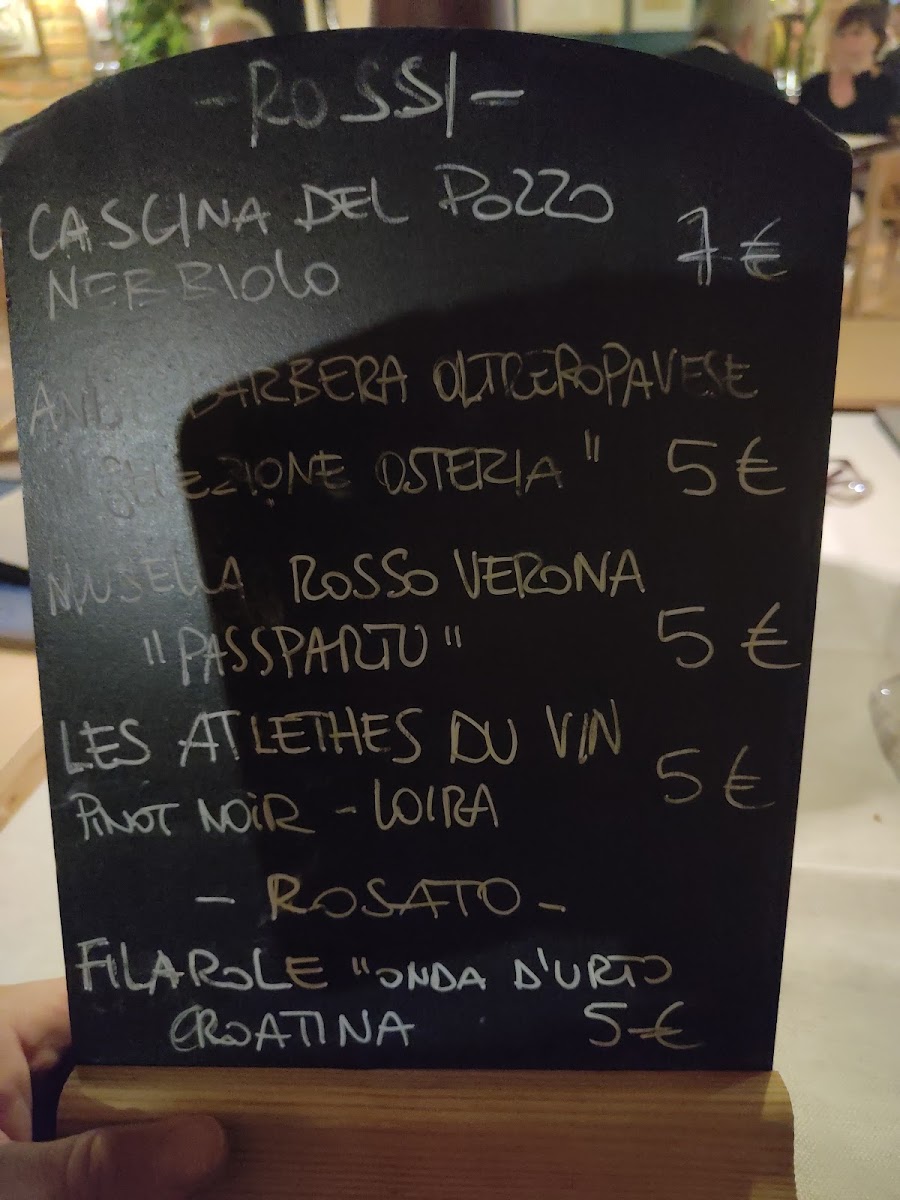 - ROSSI -
CASCINA DEL POZZO
NEBBIOLO 7 €
BARBERA OLTREROPAVESE
SELEZIONE OSTERIA " 5 €
MUSELLA ROSSO VERONA
"PASSPARTU" 5 €
LES ATLETHES DU VIN
PINOT NOIR - LOIRA 5 €
- ROSATO -
FILAROLE "ONDA D'URTO
CROATINA 5 €